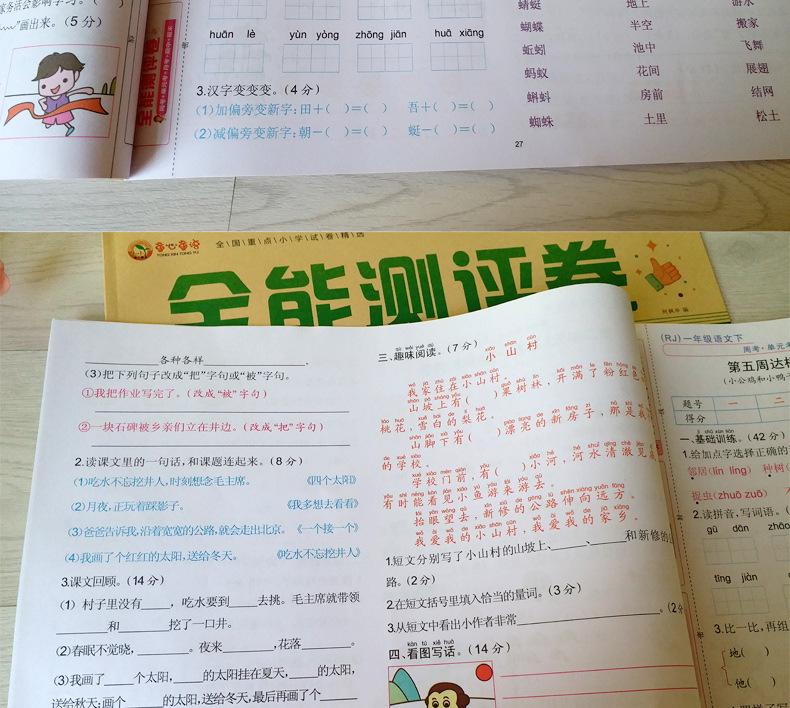 "画出来。(5分)
huān lè yùn yòng zhōng jiān huā xiāng
3.汉字变变变。(4分)
(1)加偏旁变新字:田+( )=( ) 吾+( )=( )
(2)减偏旁变新字:朝-( )=( ) 蜓-( )=( )
蜻蜓 地上 游水
蝴蝶 半空 搬家
蚯蚓 池中 飞舞
蚂蚁 花间 展翅
蝌蚪 房前 结网
蜘蛛 土里 松土
27
童心童语
TONG XIN TONG YU
全国重点小学试卷精选
全能测评卷
______各种各样______.
(3)把下列句子改成“把”字句或“被”字句。
①我把作业写完了。(改成“被”字句)
②一块石碑被乡亲们立在井边。(改成“把”字句)
2.读课文里的一句话,和课题连起来。(8分)
(1)吃水不忘挖井人,时刻想念毛主席。 《四个太阳》
(2)月夜,正玩着踩影子。 《我多想去看看》
(3)爸爸告诉我,沿着宽宽的公路,就会走出北京。 《一个接一个》
(4)我画了个红红的太阳,送给冬天。 《吃水不忘挖井人》
3.课文回顾。(14分)
(1) 村子里没有____,吃水要到____去挑。毛主席就带领
______和______挖了一口井。
(2)春眠不觉晓,______。夜来______,花落______。
(3)我画了____个太阳,____的太阳挂在夏天,____的太阳,
送给秋天;画个____的太阳,送给冬天,最后再画个____
三、趣味阅读。(7分)
小山村
我家住在小山村。
山坡上有( )果树林,开满了粉红色
桃花,雪白的梨花。
山脚下有( )漂亮的新房子,那是我
的学校。
学校门前,有( )小河,河水清澈见
有时能看见小鱼游来游去。
抬眼望去,新修的公路伸向远方。
我爱我的小山村,我爱我的家乡。
1.短文分别写了小山村的山坡上、____、____和新修的
路。(2分)
2.在短文括号里填入恰当的量词。(3分)
3.从短文中看出小作者非常______。(2分
kàn tú xiě huà
四、看图写话。(14分)
(RJ)一年级语文下
周考·单元考
第五周达标
(小公鸡和小鸭子
题号 一 二
得分
一、基础训练。(42分)
1.给加点字选择正确的
邻居(lín líng) 种树(
捉虫(zhuō zuō)
2.读拼音,写词语。(
gū dān
tīng jiàn
3.比一比,再组
地( )
他( )